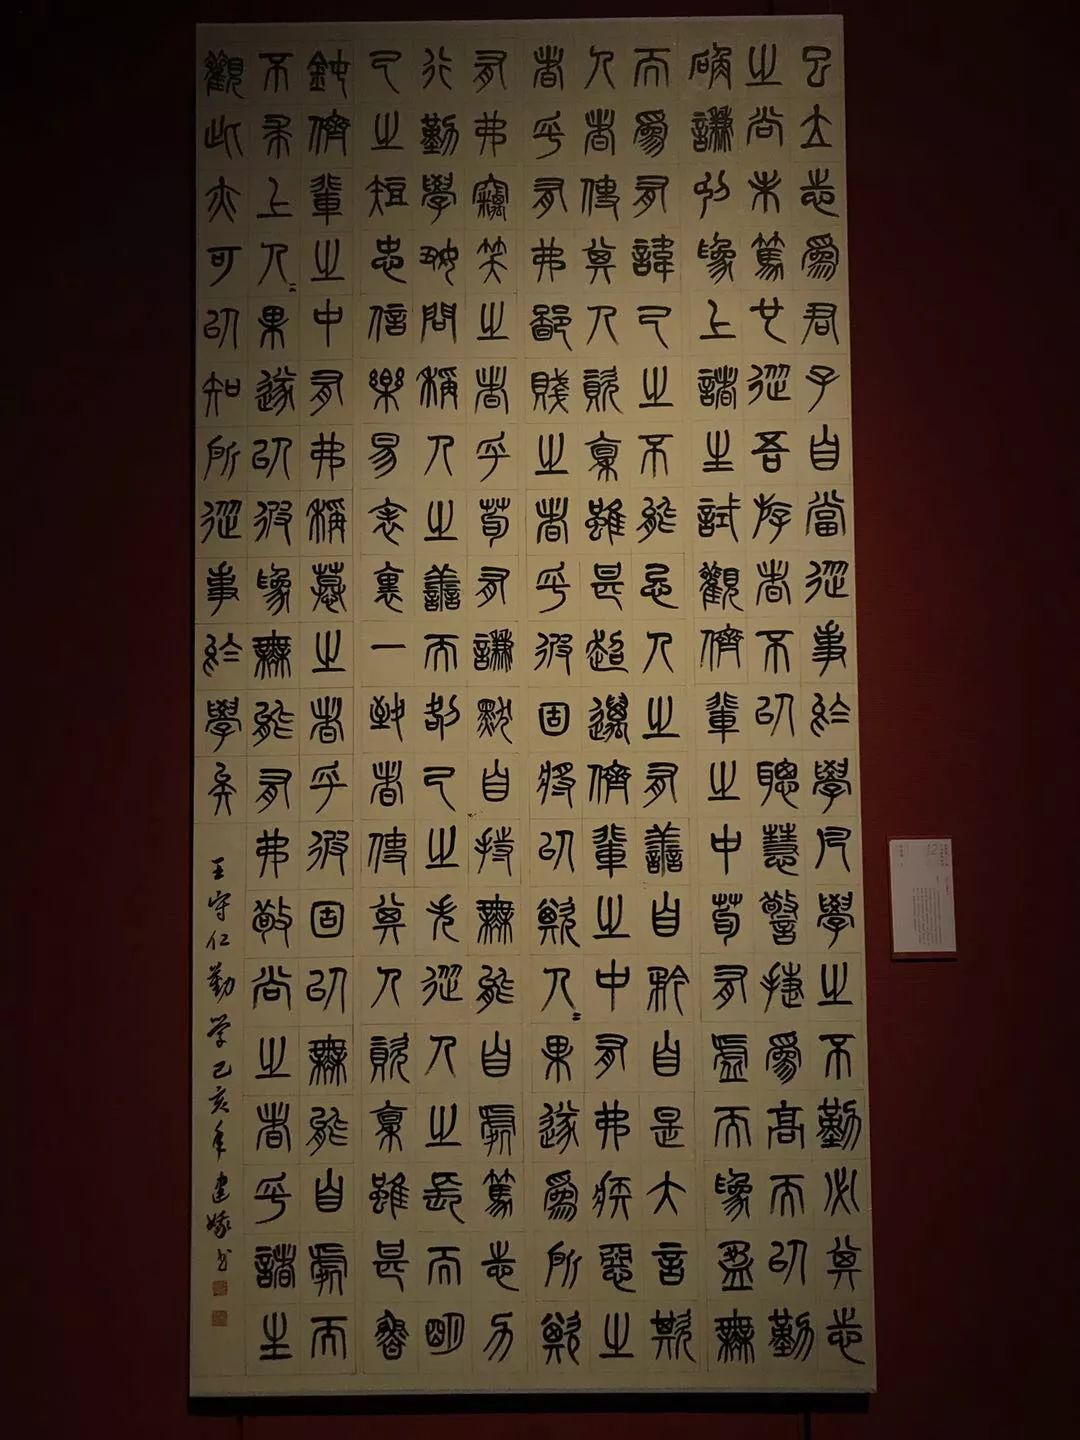 已立志爲君子自當從事於學凡學之不勤必其志
之尚未篤也從吾游者不以聰慧警捷爲高而以勤
确謙抑爲上諸生試觀儕輩之中苟有虛而爲盈無
而爲有諱己之不能忌人之有善自矜自是大言欺
人者使其人資稟雖甚超邁儕輩之中有弗疾惡之
者乎有弗鄙賤之者乎彼固將以欺人〻果遂爲所欺
有弗竊笑之者乎苟有謙默自持無能自處篤志力
行勤學好問稱人之善而咎己之失從人之長而明
己之短忠信樂易表裏一致者使其人資稟雖甚魯
鈍儕輩之中有弗稱慕之者乎彼固以無能自處而
不求上人〻果遂以彼爲無能有弗敬尚之者乎諸生
觀此亦可以知所從事於學矣
王守仁勤学己亥年建书